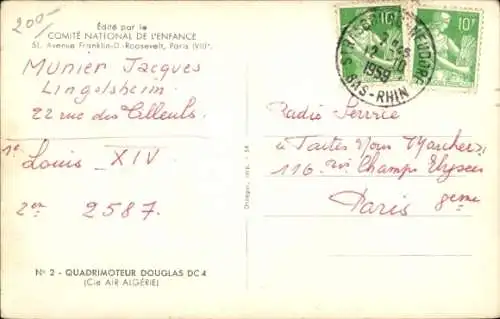 200-
Édité par le
COMITÉ NATIONAL DE L'ENFANCE
51, Avenue Franklin-D.-Roosevelt, Paris (VIIIe)
Munier Jacques
Lingolsheim
22 rue des Tilleuls
1e Louis XIV
2em 2587.
Nº 2 - QUADRIMOTEUR DOUGLAS DC 4
(Cie AIR ALGÉRIE)
Draeger, imp. - 58
10F
10F
12-10
1959
BAS-RHIN
Radio Service
"Faites Nous Marcher"
116 Champs Elysées
Paris 8eme